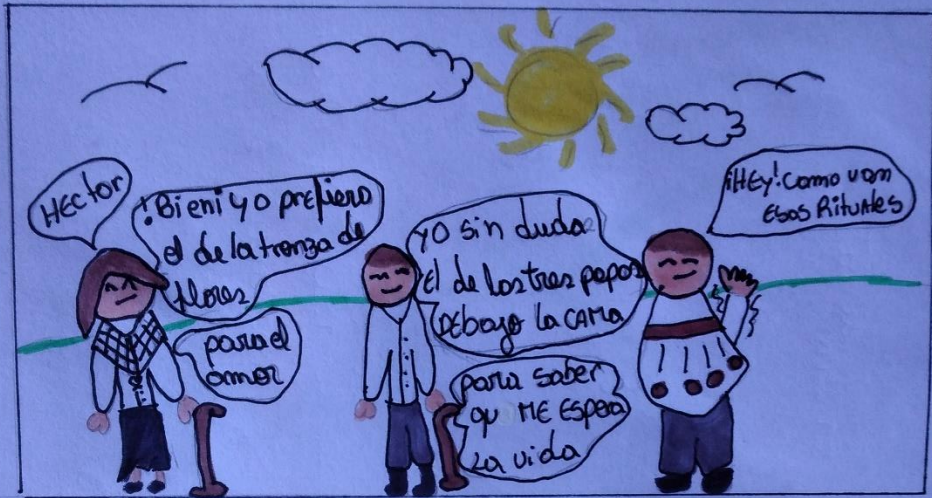 HEctor
¡Bien! yo prefiero
el de la trenza de
flores
para el
amor
yo sin duda
El de las tres papas
DEbajo la CAMA
para saber
qu ME ESpera
La vida
¡HEy! Como van
Esos Rituales